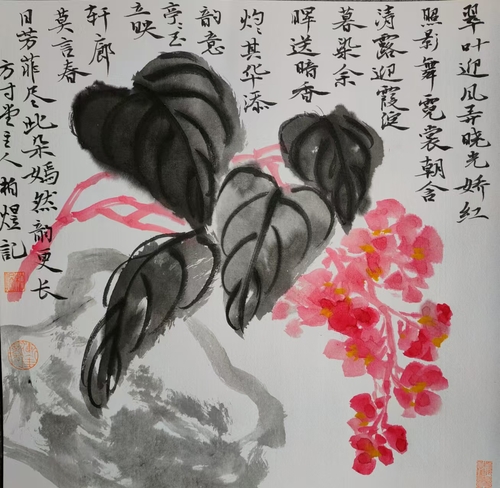 翠叶迎风弄晓光娇红
照影舞霓裳朝含
清露迎霞绽
暮染余
晖送暗香
灼其华添
韵意
亭玉
立映
轩廊
莫言春
日芳菲尽此朵嫣然韵更长
方寸堂主人柏煜記